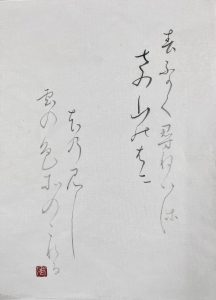 春ふかく尋ねいる
さの山のはに
ほの見し
雲の色そのこれる